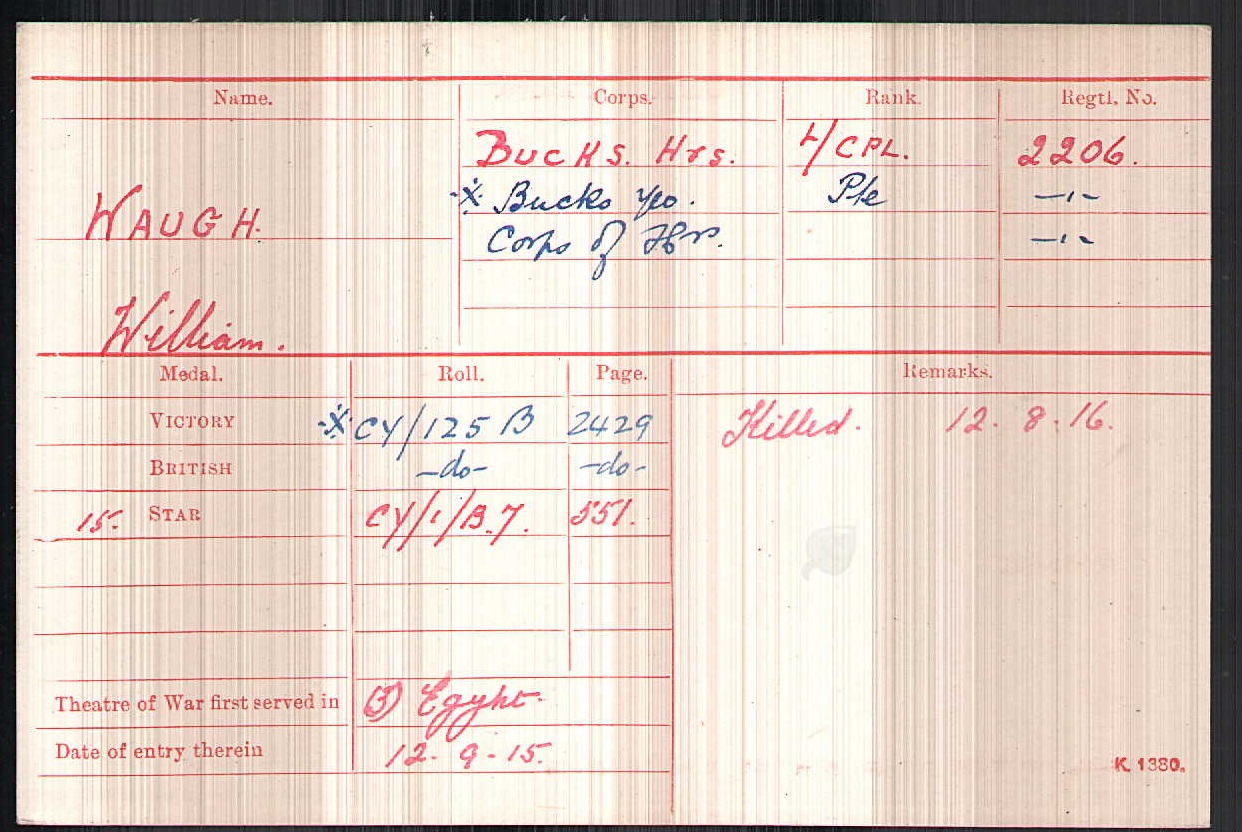 Name. Corps. Rank. Regtl. No.
Bucks. Hrs. L/CPL. 2206.
※ Bucks Yeo. Pte —"—
WAUGH. Corps of Hrs. —"—
William.
Medal. Roll. Page. Remarks.
VICTORY ※ CY/125 B 2429 Killed. 12. 8. 16.
BRITISH -do- -do-
15. STAR CY/1/B.7. 551.
Theatre of War first served in (3) Egypt.
Date of entry therein 12-9-15.
K. 1380.